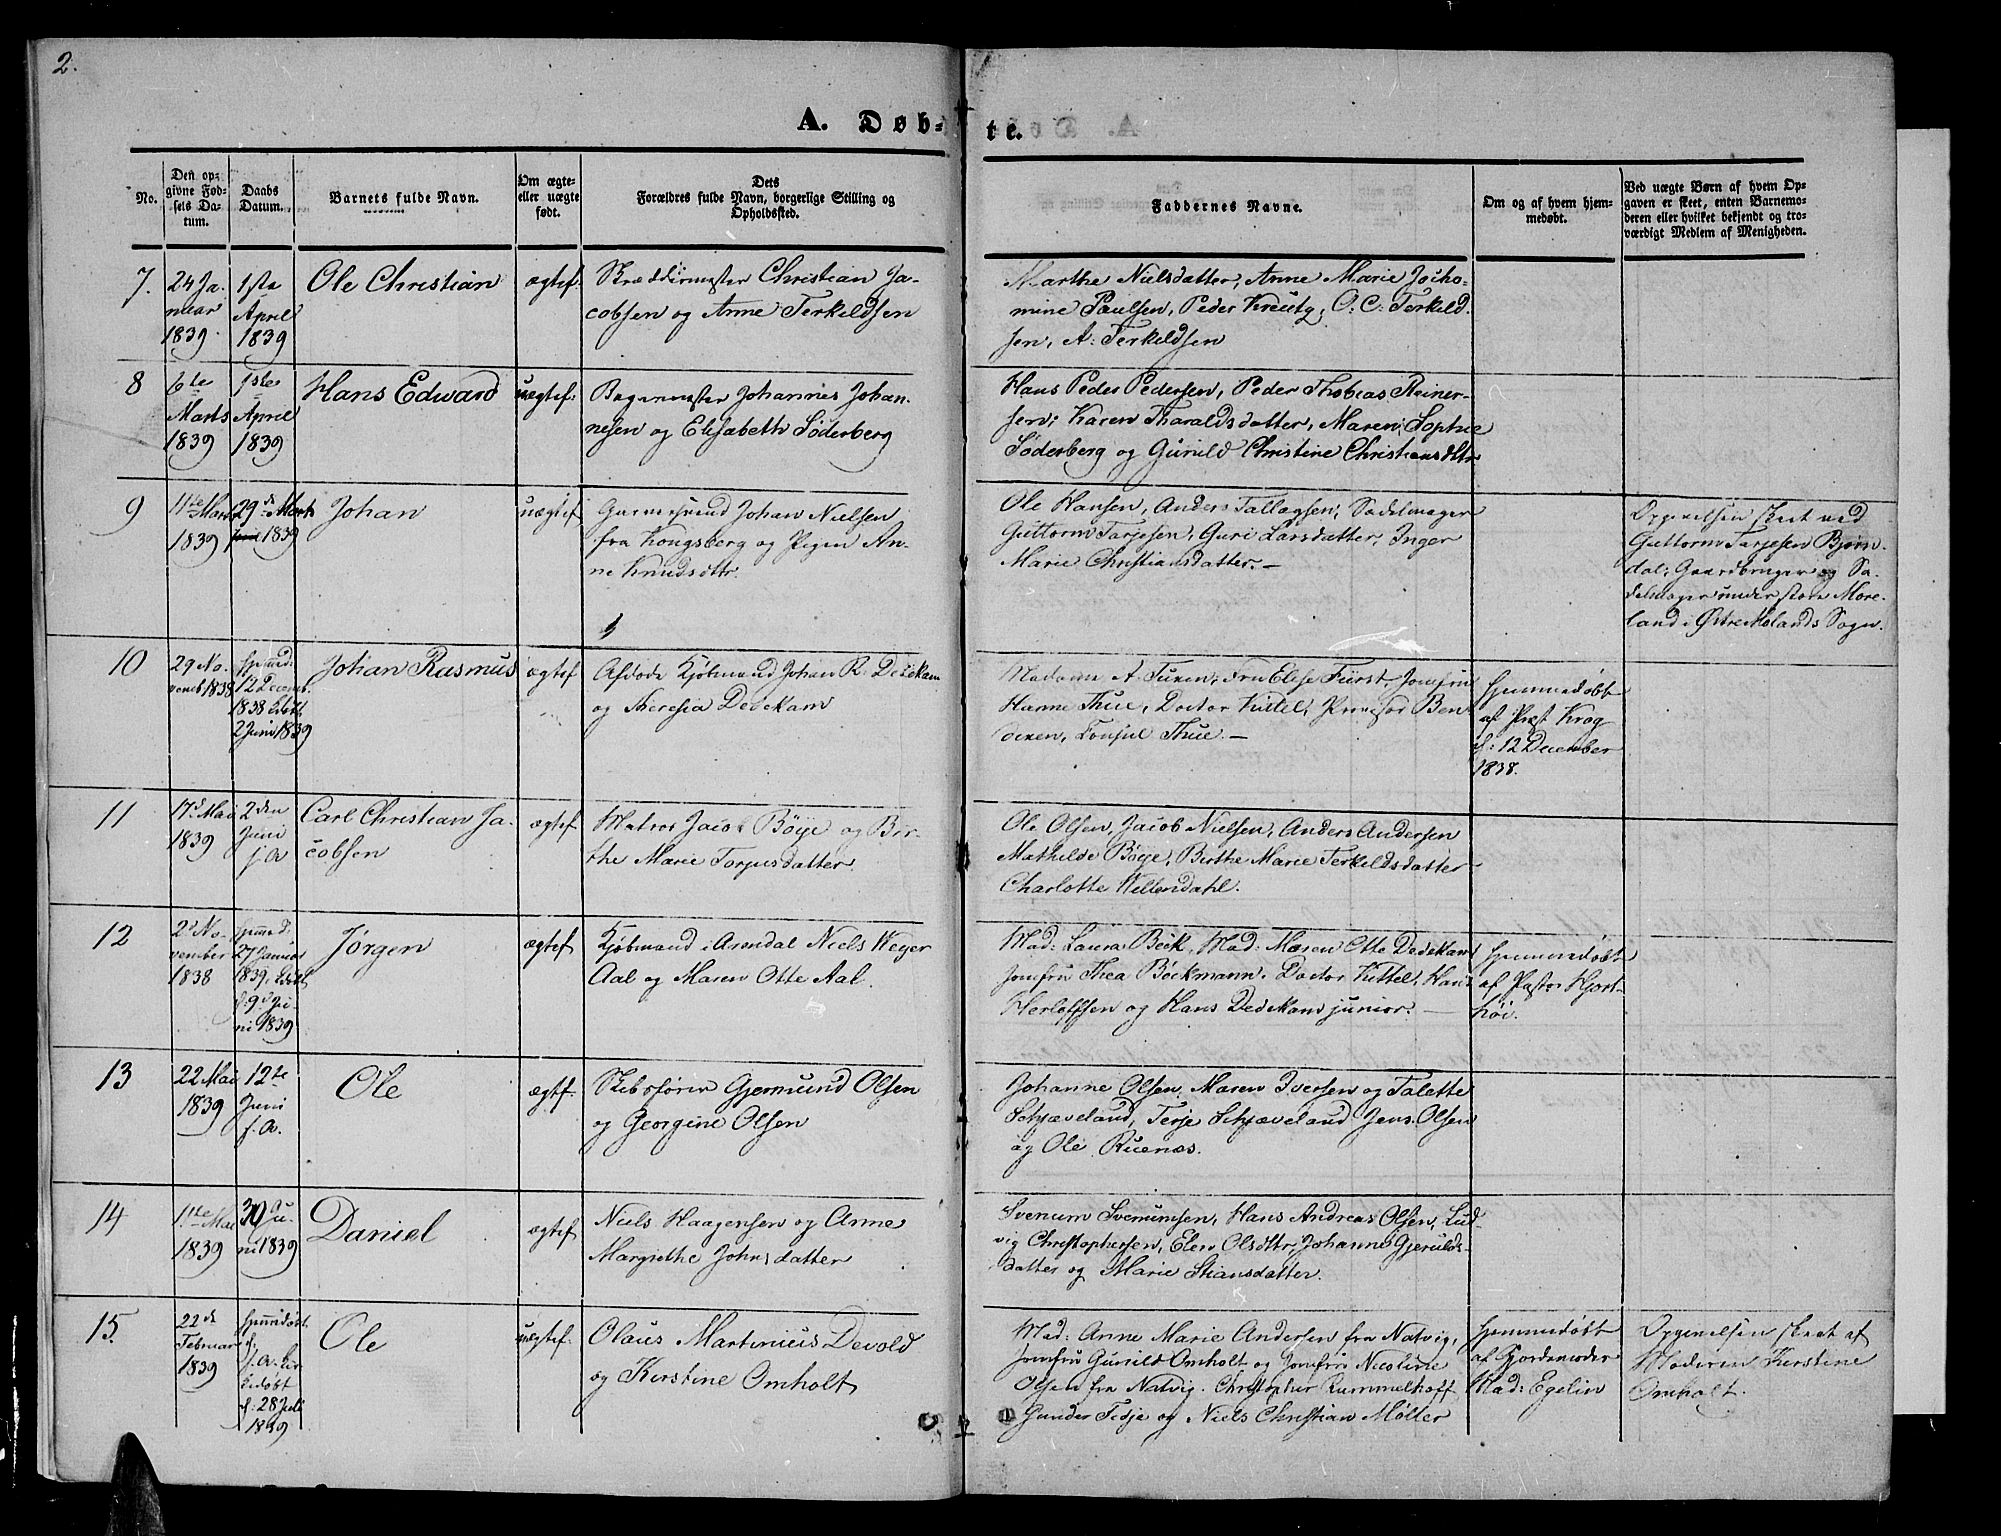 2.
A. Døb-
te.
No.
Den op-
givne Fød-
sels Da-
tum.
Daabs
Datum.
Barnets fulde Navn.
Om ægte-
eller uægte
født.
Dets
Forældres fulde Navn, borgerlige Stilling og
Opholdssted.
Faddernes Navne.
Om og af hvem hjem-
medøbt.
Ved uægte Børn af hvem Op-
gaven er skeet, enten Barnemo-
deren eller hvilket bekjendt og tro-
værdigt Medlem af Menigheden.
7.
24 Ja-
nuar
1839
1ste
April
1839
Ole Christian
ægtef.
Skræddermester Christian Ja-
cobsen og Anne Terkildsen
Marthe Nielsdatter, Anne Marie Jocho-
mine Paulsen, Peder Kreutz, O. C. Terkild-
sen, A. Terkildsen
8
6te
Marts
1839
1ste
April
1839
Hans Edward
uægtef.
Bagermester Johannes Johan-
nesen og Elisabeth Söderberg
Hans Peder Pedersen, Peder Thobias Reiner-
sen, Karen Tharaldsdatter, Maren Sophie
Söderberg og Gunild Christine Christiansdttr
9
11te Marts
1839
29de Marts
1839
Johan
uægtef
Garversvend Johan Nielsen
fra Kongsberg og Pigen An-
ne Knudsdttr.
Ole Hansen, Anders Tallagsen, Sadelmager
Guttorm Tarjesen, Guri Larsdatter, Inger
Marie Christiansdatter. -
Opgivelsen skeet ved
Guttorm Tarjesen Bjørn-
dal, Gaardbruger og Sa-
delmager under store More-
land i Østre Molands Sogn.
10
29 No-
vemb 1838
hjemmed:
12 Decemb.
1838
2 Juni 1839
Johan Rasmus
ægtef
Afdøde Kjøbmand Johan R. Dedekam
og Theresia Dedekam
Madame A. Tuxen, Fru Elise Fürst, Jomfru
Hanne Thue, Doctor Kittel, Provisor Ben-
dixen, Consul Thue. -
hjemmedøbt
af Præst Krog
d: 12 December
1838.
11
17d Mai
1839
2den
Juni
s. A
Carl Christian Ja-
cobsen
ægtef
Matros Jacob Böye og Bir-
the Marie Torjusdatter.
Ole Olsen, Jacob Nielsen, Anders Andersen
Mathilde Böye, Birthe Marie Terkildsdatter
Charlotte Wellendahl.
12
2d No-
vember
1838
hjemmed:
27 Januar
1839,
d: 9d Ju-
ni 1839
Jørgen
ægtef
Kjøbmand i Arendal Niels Weyer
Aal og Maren Otte Aal.
Mad: Laura Beck, Mad: Maren Otte Dedekam
Jomfru Thea Böckmann, Doctor Kittel, Hans
Herloffsen og Hans Dedekam junior. -
hjemmedøbt
af Pastor Hjort-
høi.
13
22 Mai
1839
12te
Juni
s. A.
Ole
ægtf.
Skibsfører Gjermund Olsen
og Georgine Olsen
Johanne Olsen, Maren Iversen og Talette
Schjæveland, Terje Schjæveland Jens Olsen
og Ole Ruenæs.
14
1ste Mai
1839
30 Ju-
ni 1839
Daniel
ægtef
Niels Haagensen og Anne
Margrethe Johnsdatter
Svenum Svenumsen, Hans Andreas Olsen, Lud-
vig Christophersen, Elen Olsdttr, Johanne Gjerulds-
datter og Marie Stiansdatter.
15.
22de
Februar
1839
hjemmedøbt
s. A.
d: 28 Juli
1839
Ole
uægtef.
Olaus Martinius Devold
og Kirstine Omholt
Mad: Anne Marie Andersen fra Natvig,
Jomfru Gunild Omholt og Jomfru Nicoline
Olsen fra Natvig. Christopher Rummelhoff
Gunder Tedje og Niels Christian Møller
hjemmedøbt
af Gjordemoder
Mad: Egelin
Opgivelsen skeet af
Moderen Kirstine
Omholt.